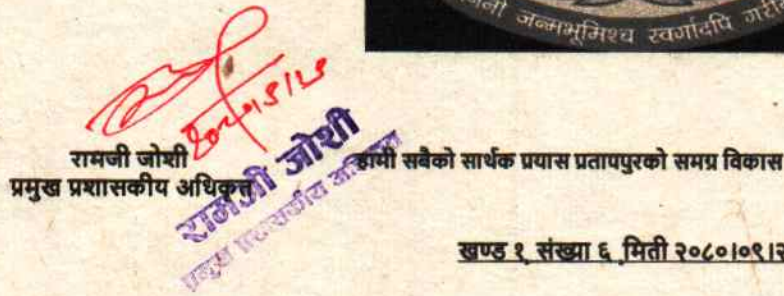 जननी जन्मभूमिश्च स्वर्गादपि गरी
रामजी जोशी
प्रमुख प्रशासकीय अधिकृत
रामजी जोशी
प्रमुख प्रशासकीय अधिकृत
हामी सबैको सार्थक प्रयास प्रतापपुरको समग्र विकास
खण्ड १ संख्या ६ मिती २०८०।०९।२